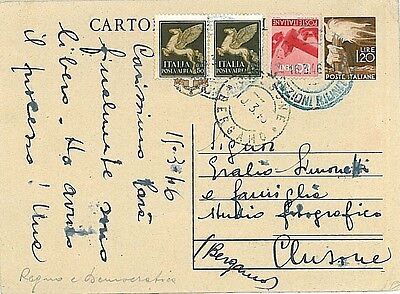 CARTO
ITALIA
POSTA AEREA
50
ITALIA
POSTA AEREA
POSTE ITALIANE
LIRE
1.20
POSTE ITALIANE
BERGAMO
15-3-46
Carissimo
finalmente sono
libero. Ho avuto
il processo! Una
Signor
Simonetti
e famiglia
studio fotografico
Clusone
(Bergamo)
Regno e Democratica